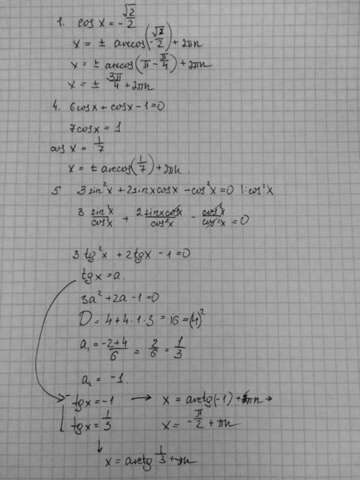 1. cos x = -√2/2
x = ± arccos(-√2/2) + 2πn
x = ± arccos(π - π/4) + 2πn
x = ± 3π/4 + 2πn
4. 6cosx + cosx - 1 = 0
7cosx = 1
cosx = 1/7
x = ± arccos(1/7) + 2πn
5. 3 sin²x + 2sinxcosx - cos²x = 0 | : cos²x
3 sin²x/cos²x + 2sinxcosx/cos²x - cos²x/cos²x = 0
3tg²x + 2tgx - 1 = 0
tgx = a
3a² + 2a - 1 = 0
D = 4 + 4·1·3 = 16 = (4)²
a₁ = -2+4/6 = 2/6 = 1/3
a₂ = -1
tgx = -1 → x = arctg(-1) + πn →
tgx = 1/3 x = -π/2 + πn
↓
x = arctg 1/3 + πn